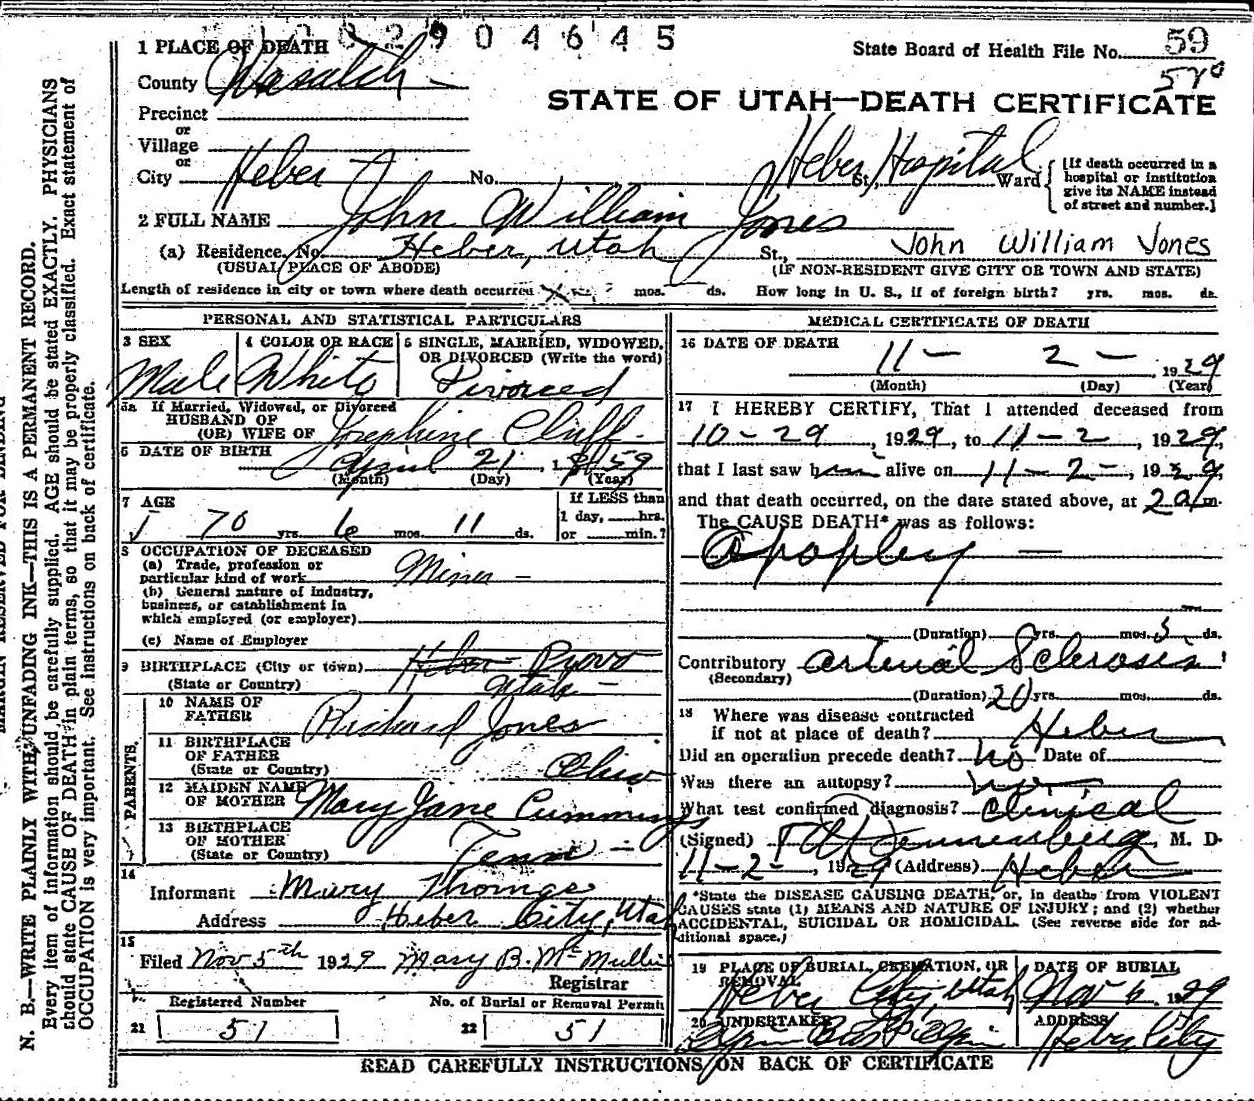 0029 04645
State Board of Health File No. 59
570
STATE OF UTAH—DEATH CERTIFICATE
1 PLACE OF DEATH
County Wasatch
Precinct
or
Village
or
City Heber No. Heber Hospital St., Ward
[If death occurred in a
hospital or institution
give its NAME instead
of street and number.]
2 FULL NAME John William Jones
(a) Residence. No. Heber, Utah St., John William Jones
(USUAL PLACE OF ABODE) (IF NON-RESIDENT GIVE CITY OR TOWN AND STATE)
Length of residence in city or town where death occurred mos. ds. How long in U. S., if of foreign birth? yrs. mos. ds.
PERSONAL AND STATISTICAL PARTICULARS
3 SEX Male
4 COLOR OR RACE White
5 SINGLE, MARRIED, WIDOWED,
OR DIVORCED (Write the word)
Divorced
5a If Married, Widowed, or Divorced
HUSBAND OF
(OR) WIFE OF Josephine Cluff
6 DATE OF BIRTH April 21, 1859
(Month) (Day) (Year)
7 AGE
70 yrs. 6 mos. 11 ds.
If LESS than
1 day, hrs.
or min.?
8 OCCUPATION OF DECEASED
(a) Trade, profession or
particular kind of work Miner
(b) General nature of Industry,
business, or establishment in
which employed (or employer)
(c) Name of Employer
9 BIRTHPLACE (City or town) Heber Provo
(State or Country) Utah
PARENTS
10 NAME OF
FATHER Richard Jones
11 BIRTHPLACE
OF FATHER
(State or Country) Ohio
12 MAIDEN NAME
OF MOTHER Mary Jane Cummings
13 BIRTHPLACE
OF MOTHER
(State or Country) Tenn
14
Informant Mary Thomas
Address Heber City, Utah
15
Filed Nov 5th 1929 Mary B. McMullin
Registrar
Registered Number No. of Burial or Removal Permit
21 51 22 51
MEDICAL CERTIFICATE OF DEATH
16 DATE OF DEATH
11 - 2 - 1929
(Month) (Day) (Year)
17 I HEREBY CERTIFY, That I attended deceased from
10-29, 1929, to 11-2, 1929,
that I last saw him alive on 11-2-, 1929,
and that death occurred, on the date stated above, at 2 a m.
The CAUSE DEATH* was as follows:
Apoplexy
(Duration) yrs. mos. 5 ds.
Contributory Arterial Sclerosis
(Secondary)
(Duration) 20 yrs. mos. ds.
18 Where was disease contracted
if not at place of death? Heber
Did an operation precede death? no Date of
Was there an autopsy? no
What test confirmed diagnosis? Clinical
(Signed) M. D.
11-2-, 1929 (Address) Heber
*State the DISEASE CAUSING DEATH, or, in deaths from VIOLENT
CAUSES state (1) MEANS AND NATURE OF INJURY; and (2) whether
ACCIDENTAL, SUICIDAL OR HOMICIDAL. (See reverse side for ad-
ditional space.)
19 PLACE OF BURIAL, CREMATION, OR
REMOVAL
Heber City, Utah
DATE OF BURIAL
Nov 5 1929
20 UNDERTAKER
ADDRESS
Heber City
READ CAREFULLY INSTRUCTIONS ON BACK OF CERTIFICATE
MARGIN RESERVED FOR BINDING
N. B.—WRITE PLAINLY WITH UNFADING INK—THIS IS A PERMANENT RECORD.
Every item of information should be carefully supplied. AGE should be stated EXACTLY. PHYSICIANS
should state CAUSE OF DEATH in plain terms, so that it may be properly classified. Exact statement of
OCCUPATION is very important. See instructions on back of certificate.